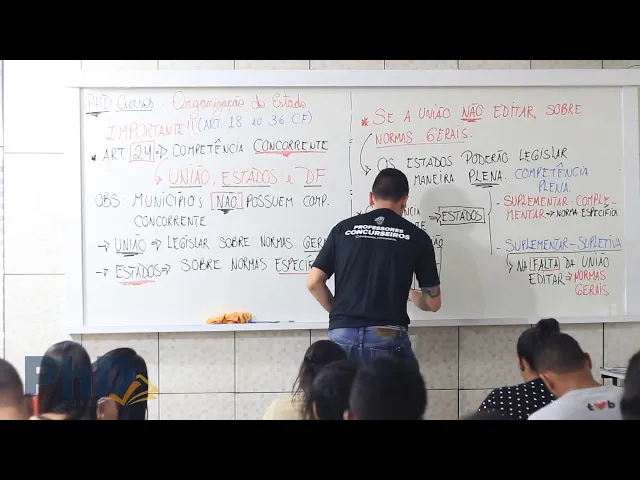 PHD Cursos - Organização do Estado
IMPORTANTE!! (ART. 18 AO 36 CF)
* ART. 24 → COMPETÊNCIA CONCORRENTE
UNIÃO, ESTADOS e DF
OBS: MUNICÍPIOS NÃO POSSUEM COMP.
CONCORRENTE
→ UNIÃO → LEGISLAR SOBRE NORMAS
→ ESTADOS → SOBRE NORMAS
* SE A UNIÃO NÃO EDITAR SOBRE
NORMAS GERAIS.
OS ESTADOS PODERÃO LEGISLAR
MANEIRA PLENA. COMPETÊNCIA
PLENA.
→ ESTADOS
- SUPLEMENTAR-COMPLE-
MENTAR → NORMA ESPECÍFICA
- SUPLEMENTAR-SUPLETIVA
↳ NA FALTA DA UNIÃO
EDITAR → NORMAS
GERAIS
PROFESSORES
CONCURSEIROS
PHD